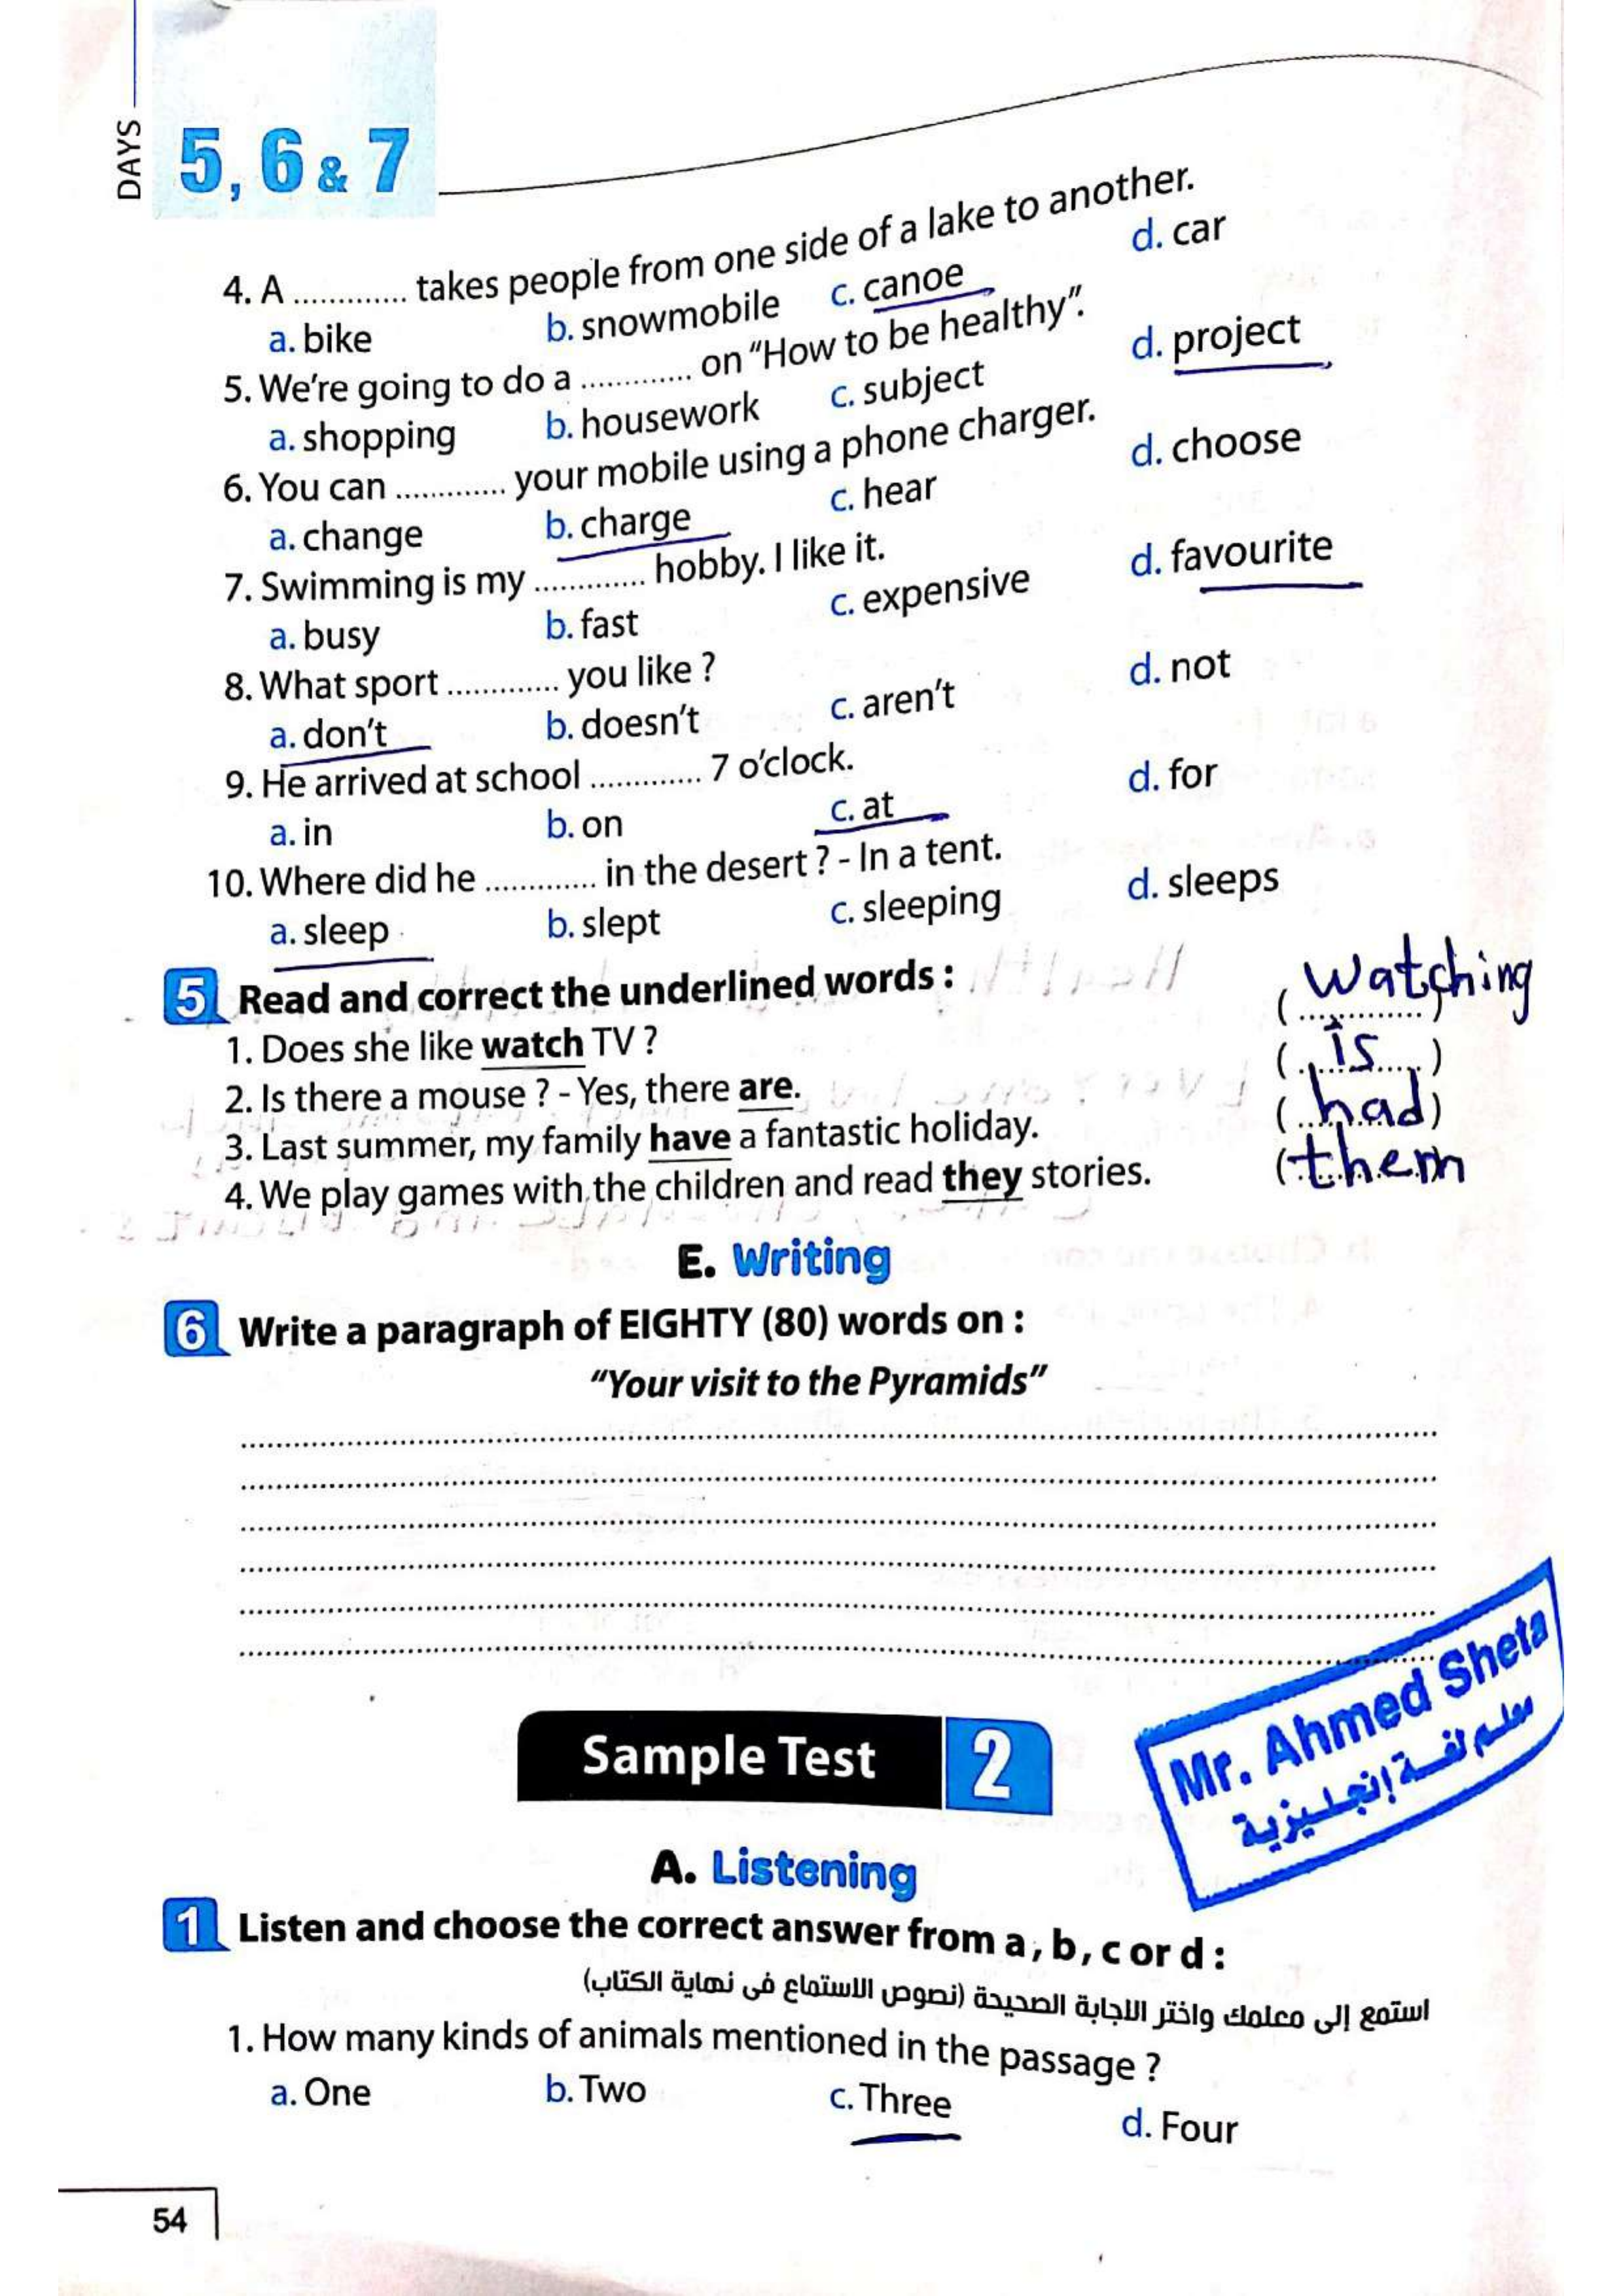 DAYS
5, 6 & 7
4. A ............. takes people from one side of a lake to another.
a. bike b. snowmobile c. canoe d. car
5. We're going to do a ............. on "How to be healthy".
a. shopping b. housework c. subject d. project
6. You can ............. your mobile using a phone charger.
a. change b. charge c. hear d. choose
7. Swimming is my ............. hobby. I like it.
a. busy b. fast c. expensive d. favourite
8. What sport ............. you like ?
a. don't b. doesn't c. aren't d. not
9. He arrived at school ............. 7 o'clock.
a. in b. on c. at d. for
10. Where did he ............. in the desert ? - In a tent.
a. sleep b. slept c. sleeping d. sleeps
5 Read and correct the underlined words :
1. Does she like watch TV ? (watching)
2. Is there a mouse ? - Yes, there are. (is)
3. Last summer, my family have a fantastic holiday. (had)
4. We play games with the children and read they stories. (them)
E. Writing
6 Write a paragraph of EIGHTY (80) words on :
"Your visit to the Pyramids"
Mr. Ahmed Sheta
معلم لغة إنجليزية
Sample Test 2
A. Listening
1 Listen and choose the correct answer from a, b, c or d :
استمع إلى معلمك واختر الاجابة الصحيحة (نصوص الاستماع فى نهاية الكتاب)
1. How many kinds of animals mentioned in the passage ?
a. One b. Two c. Three d. Four
54